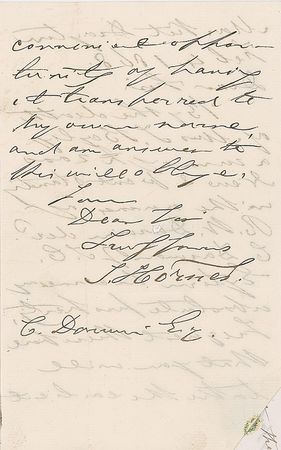 convenient oppor-
tunity of having
it transferred to
my own name,
and an answer to
this will oblige,
I am
Dear Sir
Truly Yours
J. Horned.
C. Esq.